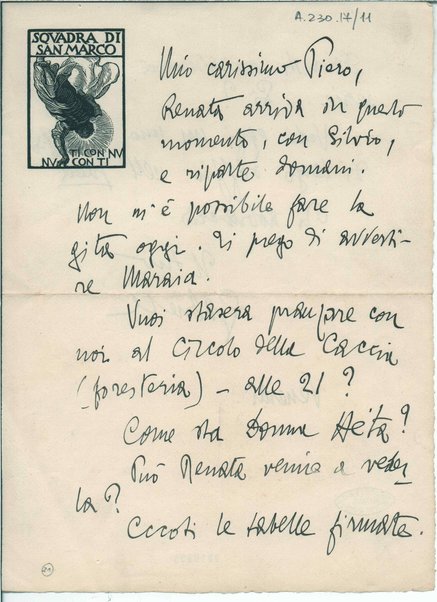 A.230.17/11
SQVADRA DI
SAN MARCO
TI CON NV
NV CON TI
Mio carissimo Piero,
Renata arriva in questo
momento, con Silvio,
e riparte domani.
Non m'è possibile fare la
gita oggi. Ti prego di avverti-
re
Vuoi stasera pranzare con
noi al Circolo della Caccia
(foresteria) – alle 21?
Come sta Donna
Può Renata venire a veder
la?
Eccoti le tabelle firmate.
21